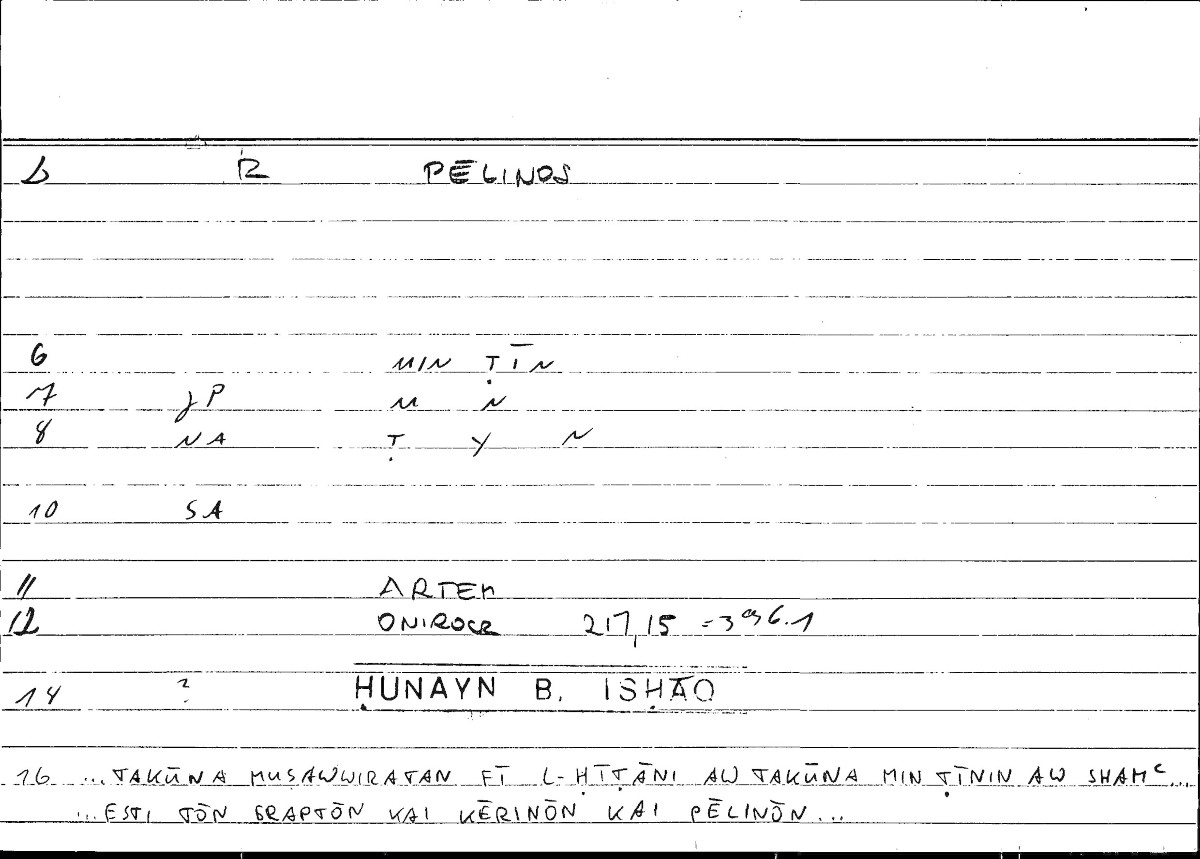 b R PĒLINOS
6 MIN ṬĪN
7 JP M N
8 NA Ṭ Y N
10 SA
11 ARTEM
12 ONIROCR 217,15 =
14 ? ḤUNAYN B. ISḤĀQ
16 ...TAKŪNA MUSAWWIRATAN FĪ L-ḤĪṬĀNI AW TAKŪNA MIN ṬĪNIN AW SHAMᶜ...
...ESTI TŌN GRAPTŌN KAI KĒRINŌN KAI PĒLINŌN...